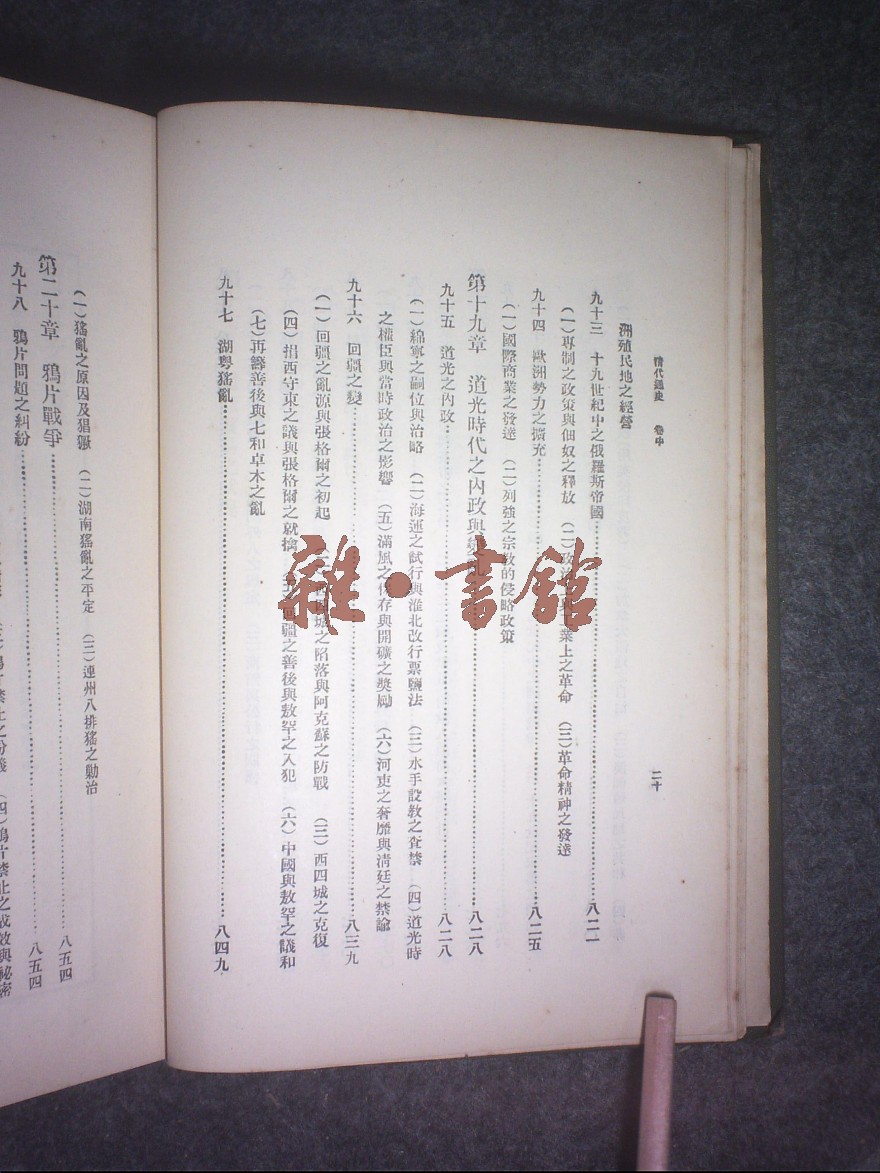 清代通史　卷中　二十
洲殖民地之經營
九十三　十九世紀中之俄羅斯帝國……八二一
（一）專制之政策與佃奴之釋放　（二）政治　與　業上之革命　（三）革命精神之發達
九十四　歐洲勢力之擴充……八二五
（一）國際商業之發達　（二）列強之宗教的侵略政策
第十九章　道光時代之內政與　……八二八
九十五　道光之內政……八二八
（一）綿寧之嗣位與治略　（二）海運之試行與淮北改行票鹽法　（三）水手設教之查禁　（四）道光時
之權臣與當時政治之影響　（五）滿風之保存與開礦之獎勵　（六）河吏之奢靡與清廷之禁諭
九十六　回疆之變……八三九
（一）回疆之亂源與張格爾之初起　（二）西四城之陷落與阿克蘇之防戰　（三）西四城之克復
（四）捐西守東之議與張格爾之就擒　（五）回疆之善後與敖罕之入犯　（六）中國與敖罕之議和
（七）再籌善後與七和卓木之亂
九十七　湖粵猺亂……八四九
（一）猺亂之原因及猖獗　（二）湖南猺亂之平定　（三）連州八排猺之勦治
第二十章　鴉片戰爭……八五四
九十八　鴉片問題之糾紛……八五四
禁止之　議　（四）鴉片禁止之成效與祕密
雜·書館